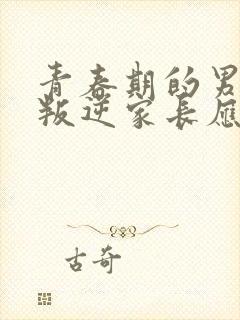 青春期的男
叛逆家长应
古奇